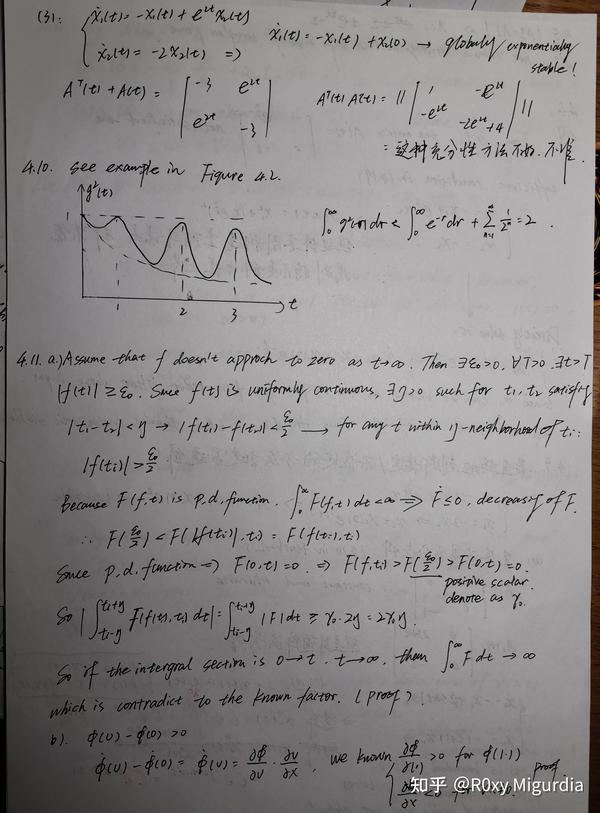 (3): { ẋ₁(t) = -x₁(t) + e^{2t} x₂(t)
ẋ₂(t) = -2x₂(t) => ẋ₁(t) = -x₁(t) + x₂(0) → globally exponentially stable!
Aᵀ(t) + A(t) = | -3 e^{2t} | Aᵀ(t) A(t) = || | 1 -e^{2t} | ||
| e^{2t} -3 | | -e^{2t} -2e^{4t}+4 |
= 这种充分性方法不好. 不准.
4.10. see example in Figure 4.2.
g²(t)
∫₀^∞ g²(r) dr < ∫₀^∞ e^{-r} dr + Σ_{n=1}^∞ 1/2ⁿ = 2.
1
t
1 2 3
4.11. a.) Assume that f doesn't approch to zero as t→∞. Then ∃ε₀>0, ∀T>0, ∃t>T
|f(t)| ≥ ε₀. Sine f(t) is uniformly continuous, ∃y>0 such for t₁, t₂ satisfing
|t₁-t₂| < y → |f(t₁)-f(t₂)| < ε₀/2 → for any t within y-neighborhood of tᵢ:
|f(tᵢ)| > ε₀/2
Because F(f,t) is p.d. function. ∫₀^∞ F(f,t) dt < ∞ => Ḟ ≤ 0, decreasing of F.
∴ F(ε₀/2) < F(|f(tᵢ)|, tᵢ) = F(f(tᵢ), tᵢ)
Sine p.d. function => F(0,t) = 0. => F(f,tᵢ) > F(ε₀/2) > F(0,t) = 0.
positive scalar.
denote as γ₀.
So | ∫_{tᵢ-y}^{tᵢ+y} F(f(t), tᵢ) dt | = ∫_{tᵢ-y}^{tᵢ+y} |F| dt ≥ γ₀·2y = 2γ₀y.
So if the intergral section is 0→t. t→∞, then ∫₀^∞ F dt → ∞
which is contradict to the known factor. (proof)
b). φ(v) - φ(0) > 0
φ̇(v) - φ̇(0) = φ̇(v) = ∂φ/∂v · ∂v/∂x, we known { ∂φ/∂(·) > 0 for φ(|·|) proof
知乎 @R0xy.Migurdia